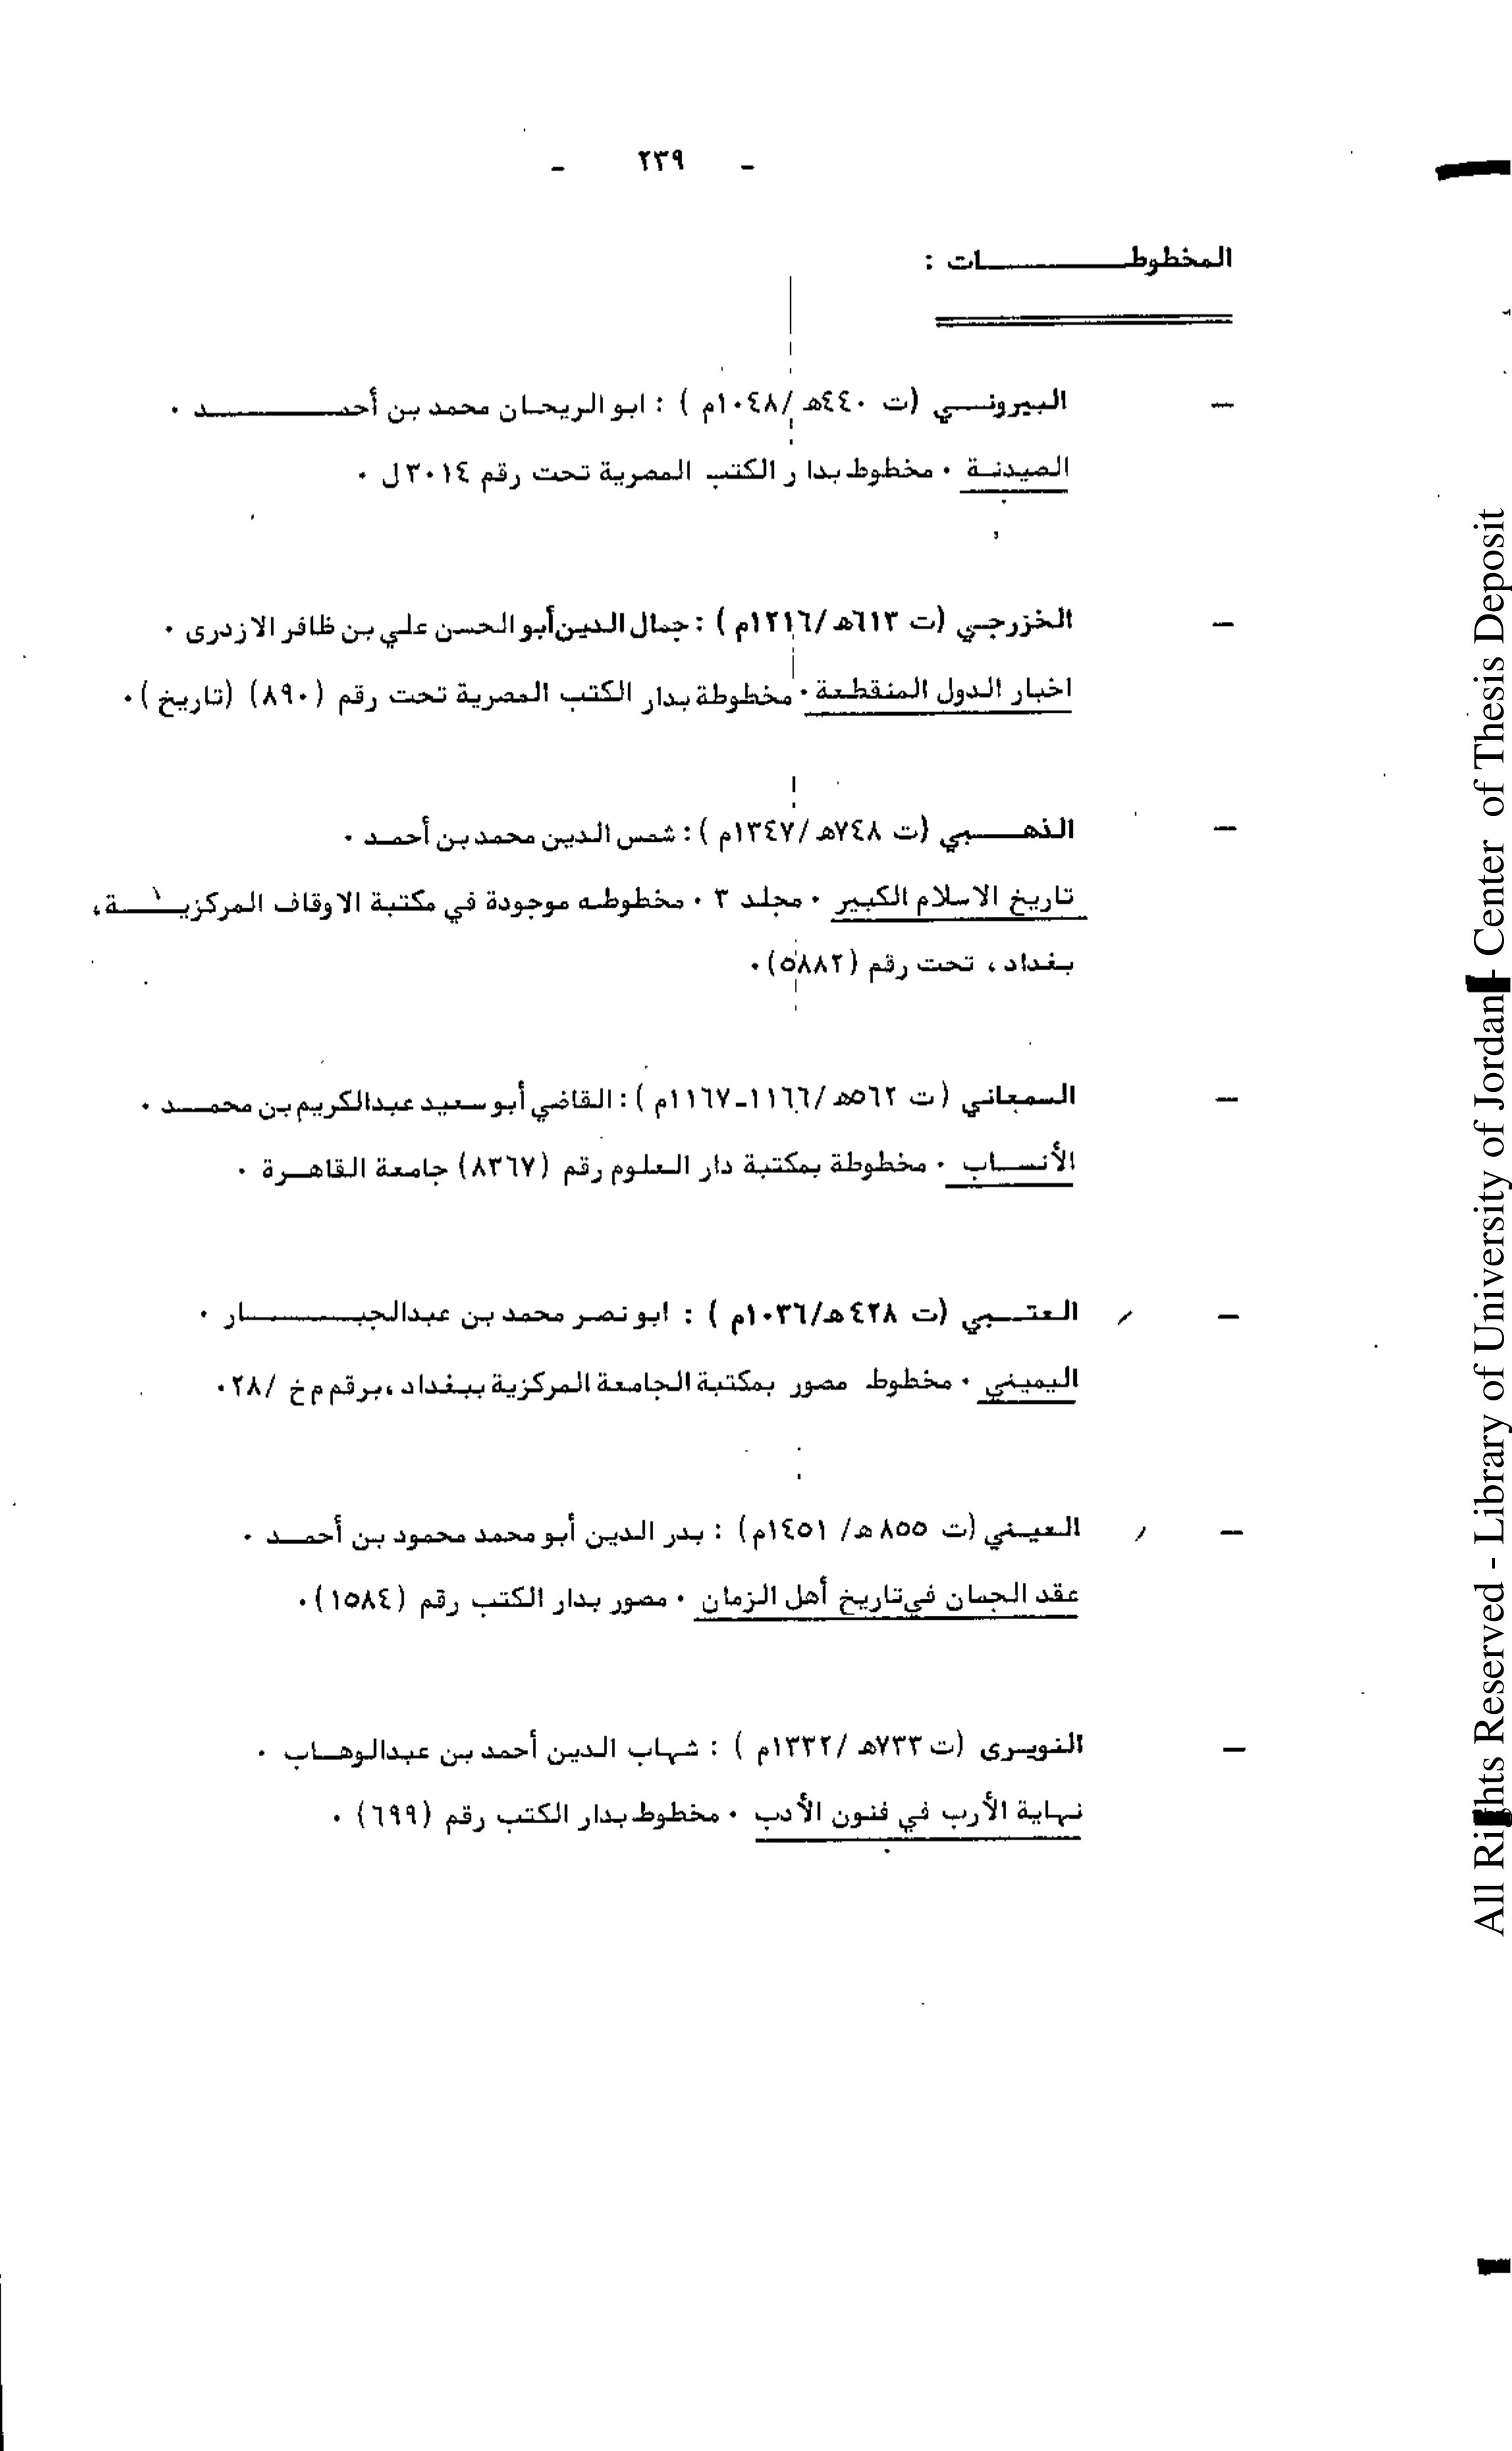 - ٢٣٩ -
المخطوطــــــــات :
- البيرونــي (ت ٤٤٠هـ /١٠٤٨م ) : ابو الريحان محمد بن أحمـــــــد ٠
الصيدنـة ٠ مخطوط بدار الكتب المصرية تحت رقم ٣٠١٤ ل ٠
- الخزرجي (ت ٦١٣هـ /١٢١٦م ) : جمال الدين أبو الحسن علي بن ظافر الازدرى ٠
اخبار الدول المنقطعة ٠ مخطوطة بدار الكتب المصرية تحت رقم (٨٩٠) (تاريخ ) ٠
- الذهـــبي (ت ٧٤٨هـ /١٣٤٧م ) : شمس الدين محمد بن أحمـد ٠
تاريخ الاسلام الكبير ٠ مجلد ٣ ٠ مخطوطه موجودة في مكتبة الاوقاف المركزيـــة ،
بغداد ، تحت رقم (٥٨٨٢) ٠
- السمعاني ( ت ٥٦٢هـ /١١٦٦-١١٦٧م ) : القاضي أبو سعيد عبدالكريم بن محمــد ٠
الأنســاب ٠ مخطوطة بمكتبة دار العلوم رقم (٨٣٦٧) جامعة القاهـرة ٠
- العتــبي (ت ٤٢٨هـ/١٠٣٦م ) : ابو نصر محمد بن عبدالجبــــــار ٠
اليميني ٠ مخطوط مصور بمكتبة الجامعة المركزية ببغداد ،برقم م خ /٢٨ ٠
- العيـني (ت ٨٥٥هـ/ ١٤٥١م) : بدر الدين أبو محمد محمود بن أحمــد ٠
عقد الجمان في تاريخ أهل الزمان ٠ مصور بدار الكتب رقم (١٥٨٤) ٠
- النويـرى (ت ٧٣٣هـ /١٣٣٢م ) : شهاب الدين أحمد بن عبدالوهـاب ٠
نهاية الأرب في فنون الأدب ٠ مخطوط بدار الكتب رقم (٦٩٩) ٠
All Rights Reserved - Library of University of Jordan - Center of Thesis Deposit